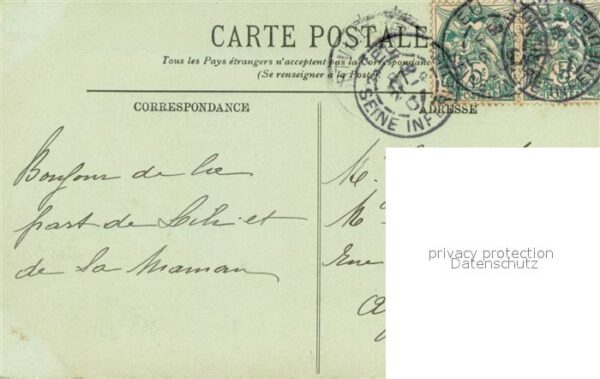 CARTE POSTALE
Tous les Pays étrangers n'acceptent pas la Correspondance
(Se renseigner à la Poste)
CORRESPONDANCE
ADRESSE
Bonjour de la
part de Lili et
de Sa Maman
M.
M
rue
privacy protection
Datenschutz
SEINE INF
EU
5c
5c